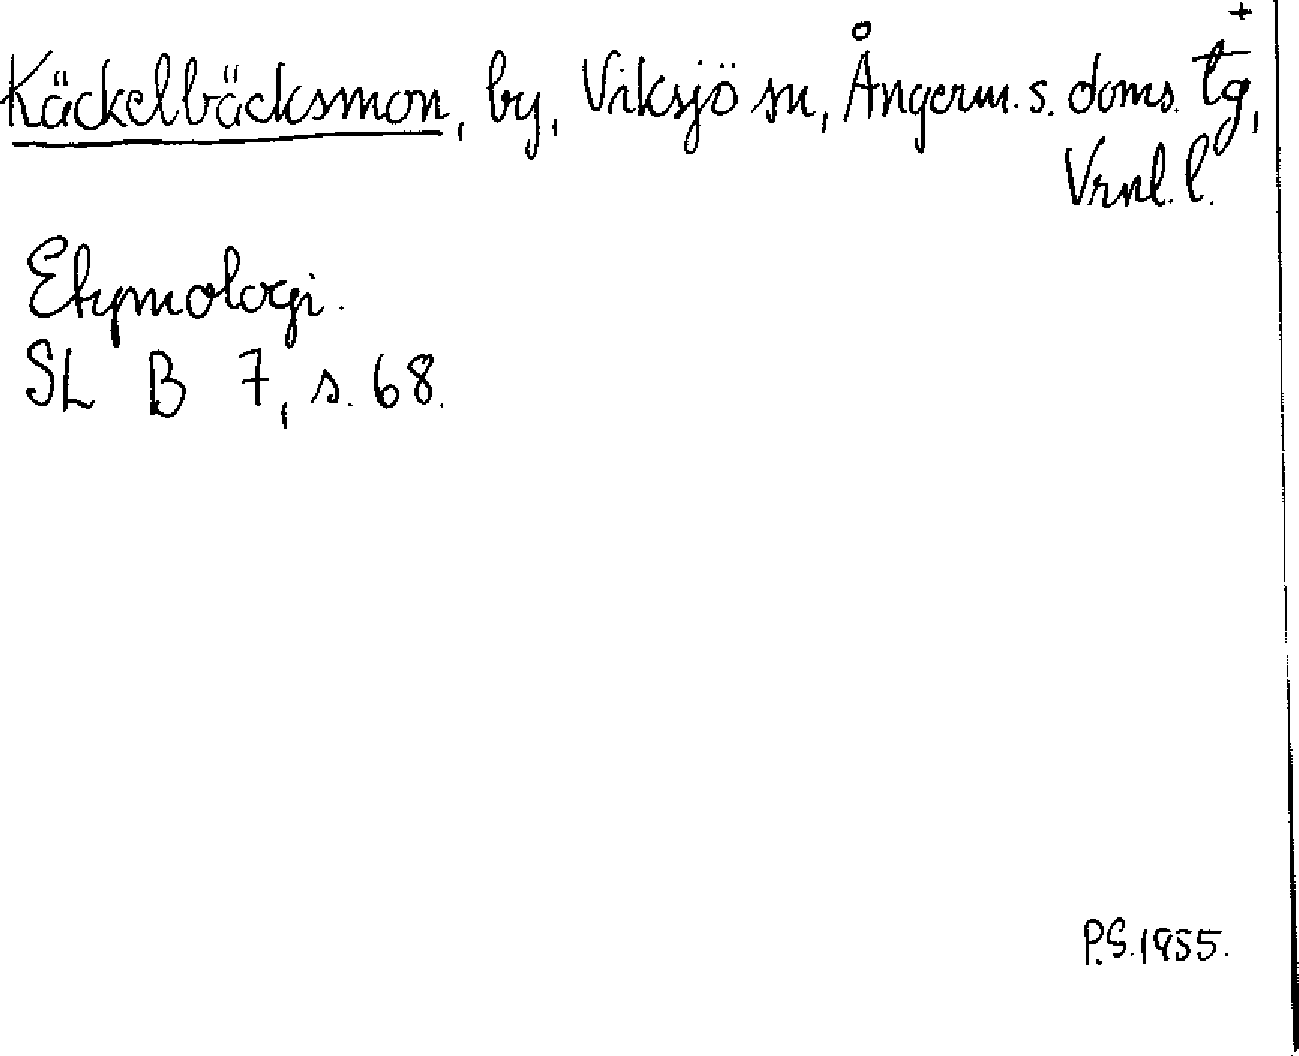 +
Käckelbäcksmon, by, Viksjö sn, Ångerm. s. doms. tg,
Vrnl. l.
Etymologi.
SL B 7, s. 68.
P.S. 1955.